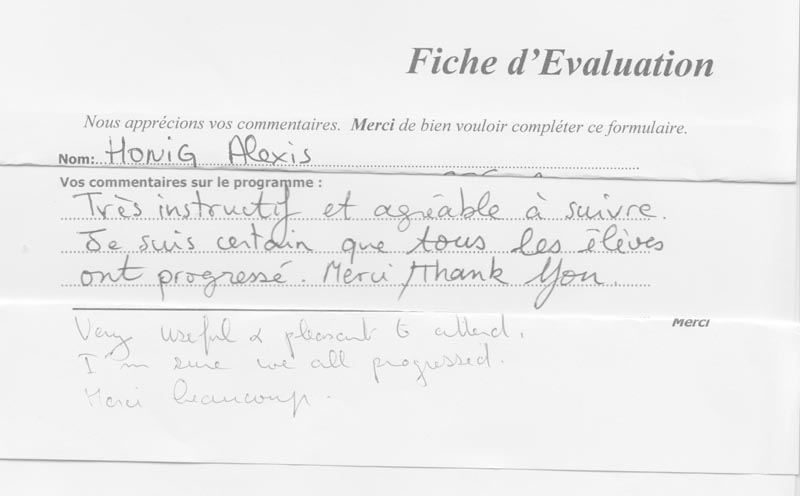 Fiche d'Evaluation
Nous apprécions vos commentaires. Merci de bien vouloir compléter ce formulaire.
Nom: HONIG Alexis
Vos commentaires sur le programme :
Très instructif et agréable à suivre.
Je suis certain que tous les élèves
ont progressé. Merci / Thank You.
Merci
Very useful & pleasant to attend.
I'm sure we all progressed.
Merci beaucoup.